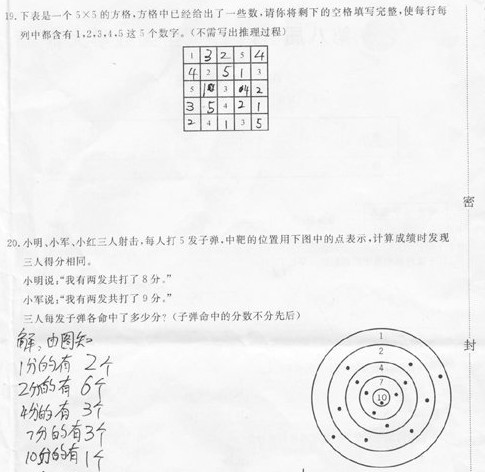 19.下表是一个5×5的方格,方格中已经给出了一些数,请你将剩下的空格填写完整,使每行每
列中都含有1,2,3,4,5这5个数字。(不需写出推理过程)
1 3 2 5 4
4 2 5 1 3
5 1 3 4 2
3 5 4 2 1
2 4 1 3 5
密
20.小明、小军、小红三人射击,每人打5发子弹,中靶的位置用下图中的点表示,计算成绩时发现
三人得分相同。
小明说:“我有两发共打了8分。”
小军说:“我有两发共打了9分。”
三人每发子弹各命中了多少分?(子弹命中的分数不分先后)
解,由图知
1分的有 2个
2分的有 6个
4分的有 3个
7分的有3个
10分的有1个
1
2
4
7
10
封